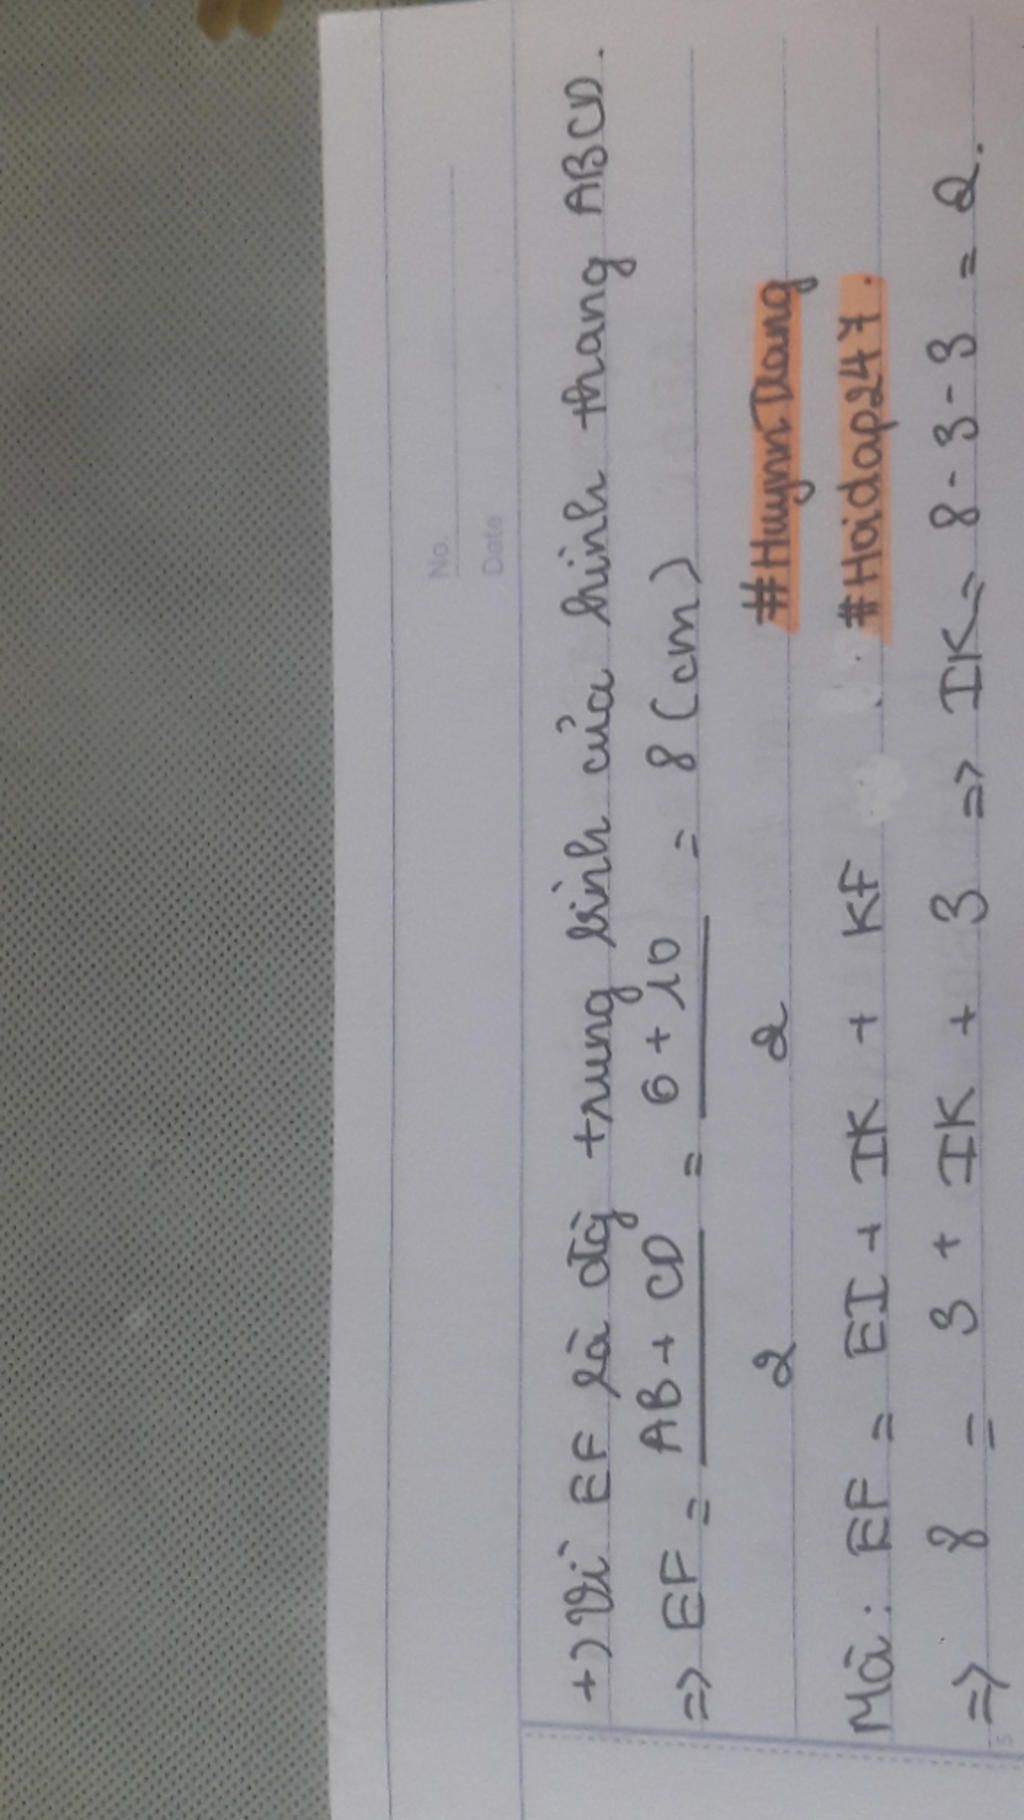 No.
Date
+) Vì EF là đg trung bình của hình thang ABCD.
=> EF = AB + CD / 2 = 6 + 10 / 2 = 8 (cm)
#HuynnTrang
Mà: EF = EI + IK + KF . #Hoidap247.
=> 8 = 3 + IK + 3 => IK = 8 - 3 - 3 = 2.